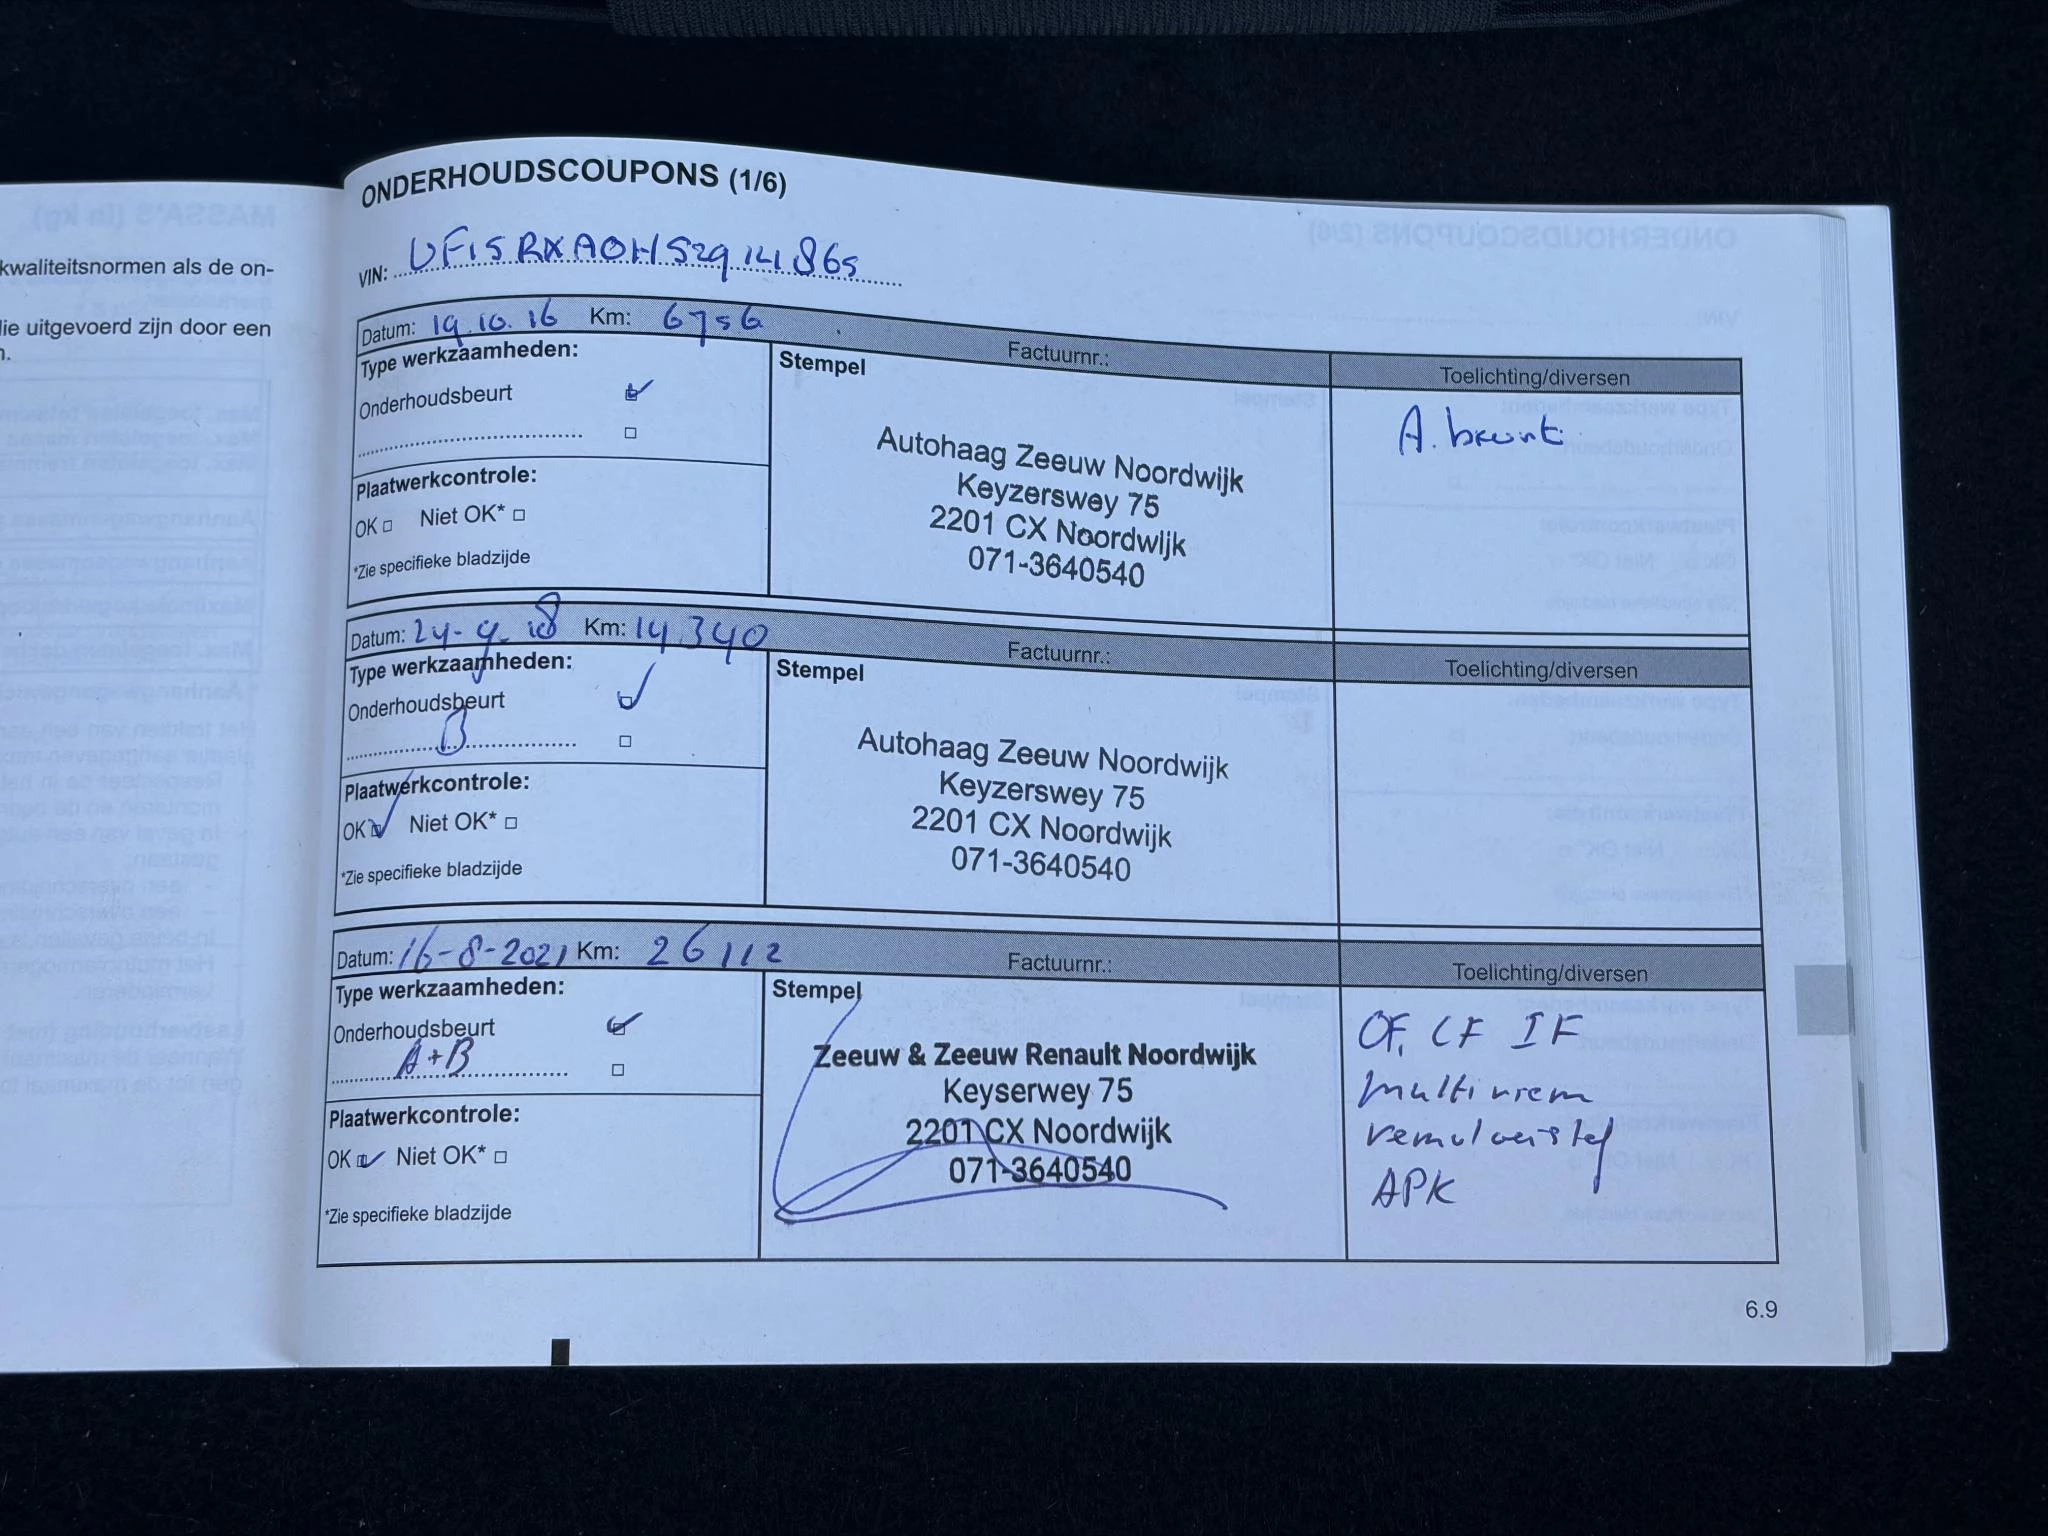 kwaliteitsnormen als de on-
die uitgevoerd zijn door een
n.
ONDERHOUDSCOUPONS (1/6)
VIN: VF15RXAOH52914865
Datum: 19.10.16 Km: 6756 Factuurnr.: Toelichting/diversen
Type werkzaamheden:
Stempel
Onderhoudsbeurt
A. beurt
Autohaag Zeeuw Noordwijk
Keyzerswey 75
2201 CX Noordwijk
071-3640540
Plaatwerkcontrole:
OK Niet OK*
*Zie specifieke bladzijde
Datum: 24-9-18 Km: 14.340 Factuurnr.: Toelichting/diversen
Type werkzaamheden:
Stempel
Onderhoudsbeurt
B
Autohaag Zeeuw Noordwijk
Keyzerswey 75
2201 CX Noordwijk
071-3640540
Plaatwerkcontrole:
OK Niet OK*
*Zie specifieke bladzijde
Datum: 16-8-2021 Km: 26112 Factuurnr.: Toelichting/diversen
Type werkzaamheden:
Stempel
Onderhoudsbeurt
A+B
Zeeuw & Zeeuw Renault Noordwijk
Keyserwey 75
2201 CX Noordwijk
071-3640540
OF, CF IF
multiriem
remvloeistof
APK
Plaatwerkcontrole:
OK Niet OK*
*Zie specifieke bladzijde
6.9